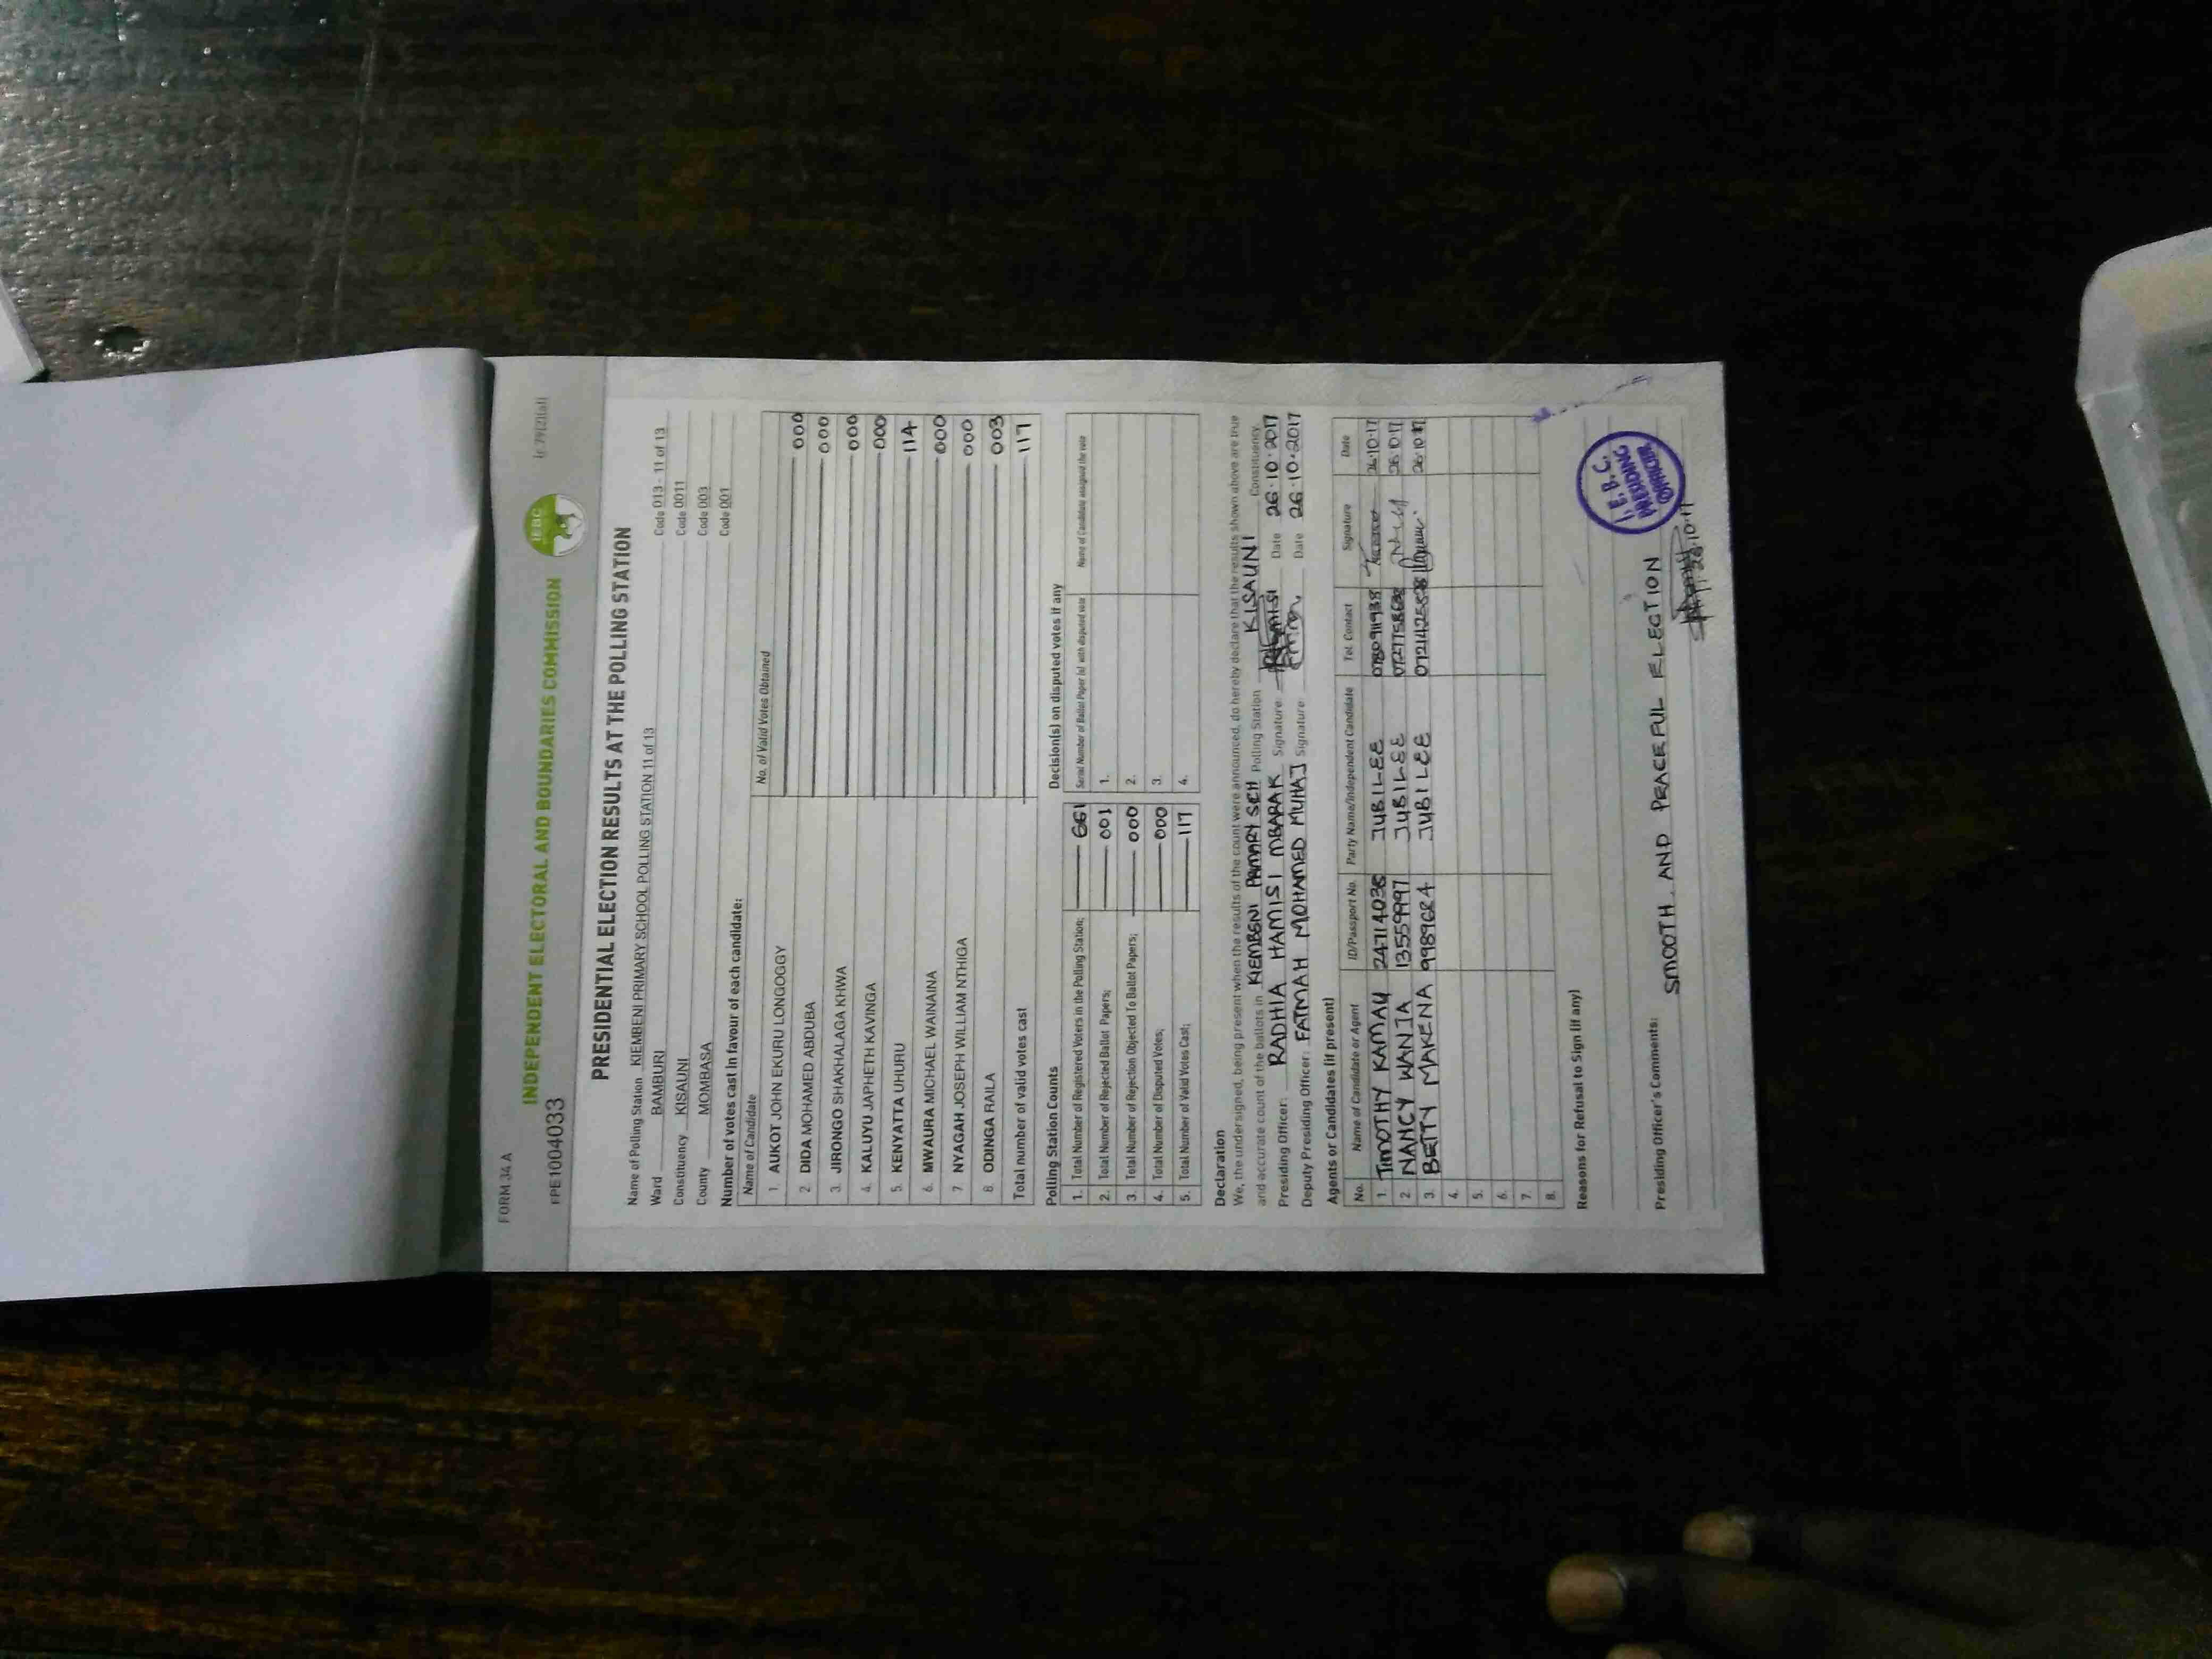 FORM 34 A
INDEPENDENT ELECTORAL AND BOUNDARIES COMMISSION
IEBC
FPE1004033
PRESIDENTIAL ELECTION RESULTS AT THE POLLING STATION
Name of Polling Station KIEMBENI PRIMARY SCHOOL POLLING STATION 11 of 13 Code 013 - 11 of 13
Ward BAMBURI
Constituency KISAUNI Code 0011
County MOMBASA Code 003
Code 001
Number of votes cast in favour of each candidate:
Name of Candidate No. of Valid Votes Obtained
1. AUKOT JOHN EKURU LONGOGGY 000
2. DIDA MOHAMED ABDUBA 000
3. JIRONGO SHAKHALAGA KHWA 000
4. KALUYU JAPHETH KAVINGA 000
5. KENYATTA UHURU 114
6. MWAURA MICHAEL WAINAINA 000
7 NYAGAH JOSEPH WILLIAM NTHIGA 000
8. ODINGA RAILA 003
Total number of valid votes cast 117
Polling Station Counts
1. Total Number of Registered Voters in the Polling Station; 661
2. Total Number of Rejected Ballot Papers; 001
3. Total Number of Rejection Objected To Ballot Papers; 000
4. Total Number of Disputed Votes; 000
5. Total Number of Valid Votes Cast; 117
Decision(s) on disputed votes if any
Serial Number of Ballot Paper (s) with disputed vote Name of Candidate assigned the vote
1.
2.
3.
4.
Declaration
We, the undersigned, being present when the results of the count were announced, do hereby declare that the results shown above are true
and accurate count of the ballots in KIEMBENI PRIMARY SCH Polling Station KISAUNI Constituency
Presiding Officer: RADHIA HAMISI MBARAK Signature: Date 26.10.2017
Deputy Presiding Officer: FATMAH MOHAMED MUHAJ Signature: Date 26.10.2017
Agents or Candidates (if present)
No. Name of Candidate or Agent ID/Passport No. Party Name/Independent Candidate Tel. Contact Signature Date
1. TIMOTHY KAMAU JUBILEE 26.10.17
2. NANCY WANJA 13559997 JUBILEE 26.10.17
3. BETTY MAKENA 9989684 JUBILEE 26.10.17
4.
5.
6.
7.
8.
Reasons for Refusal to Sign (if any)
Presiding Officer's Comments:
SMOOTH AND PEACEFUL ELECTION
26.10.17
I.E.B.C.
PRESIDING
OFFICER